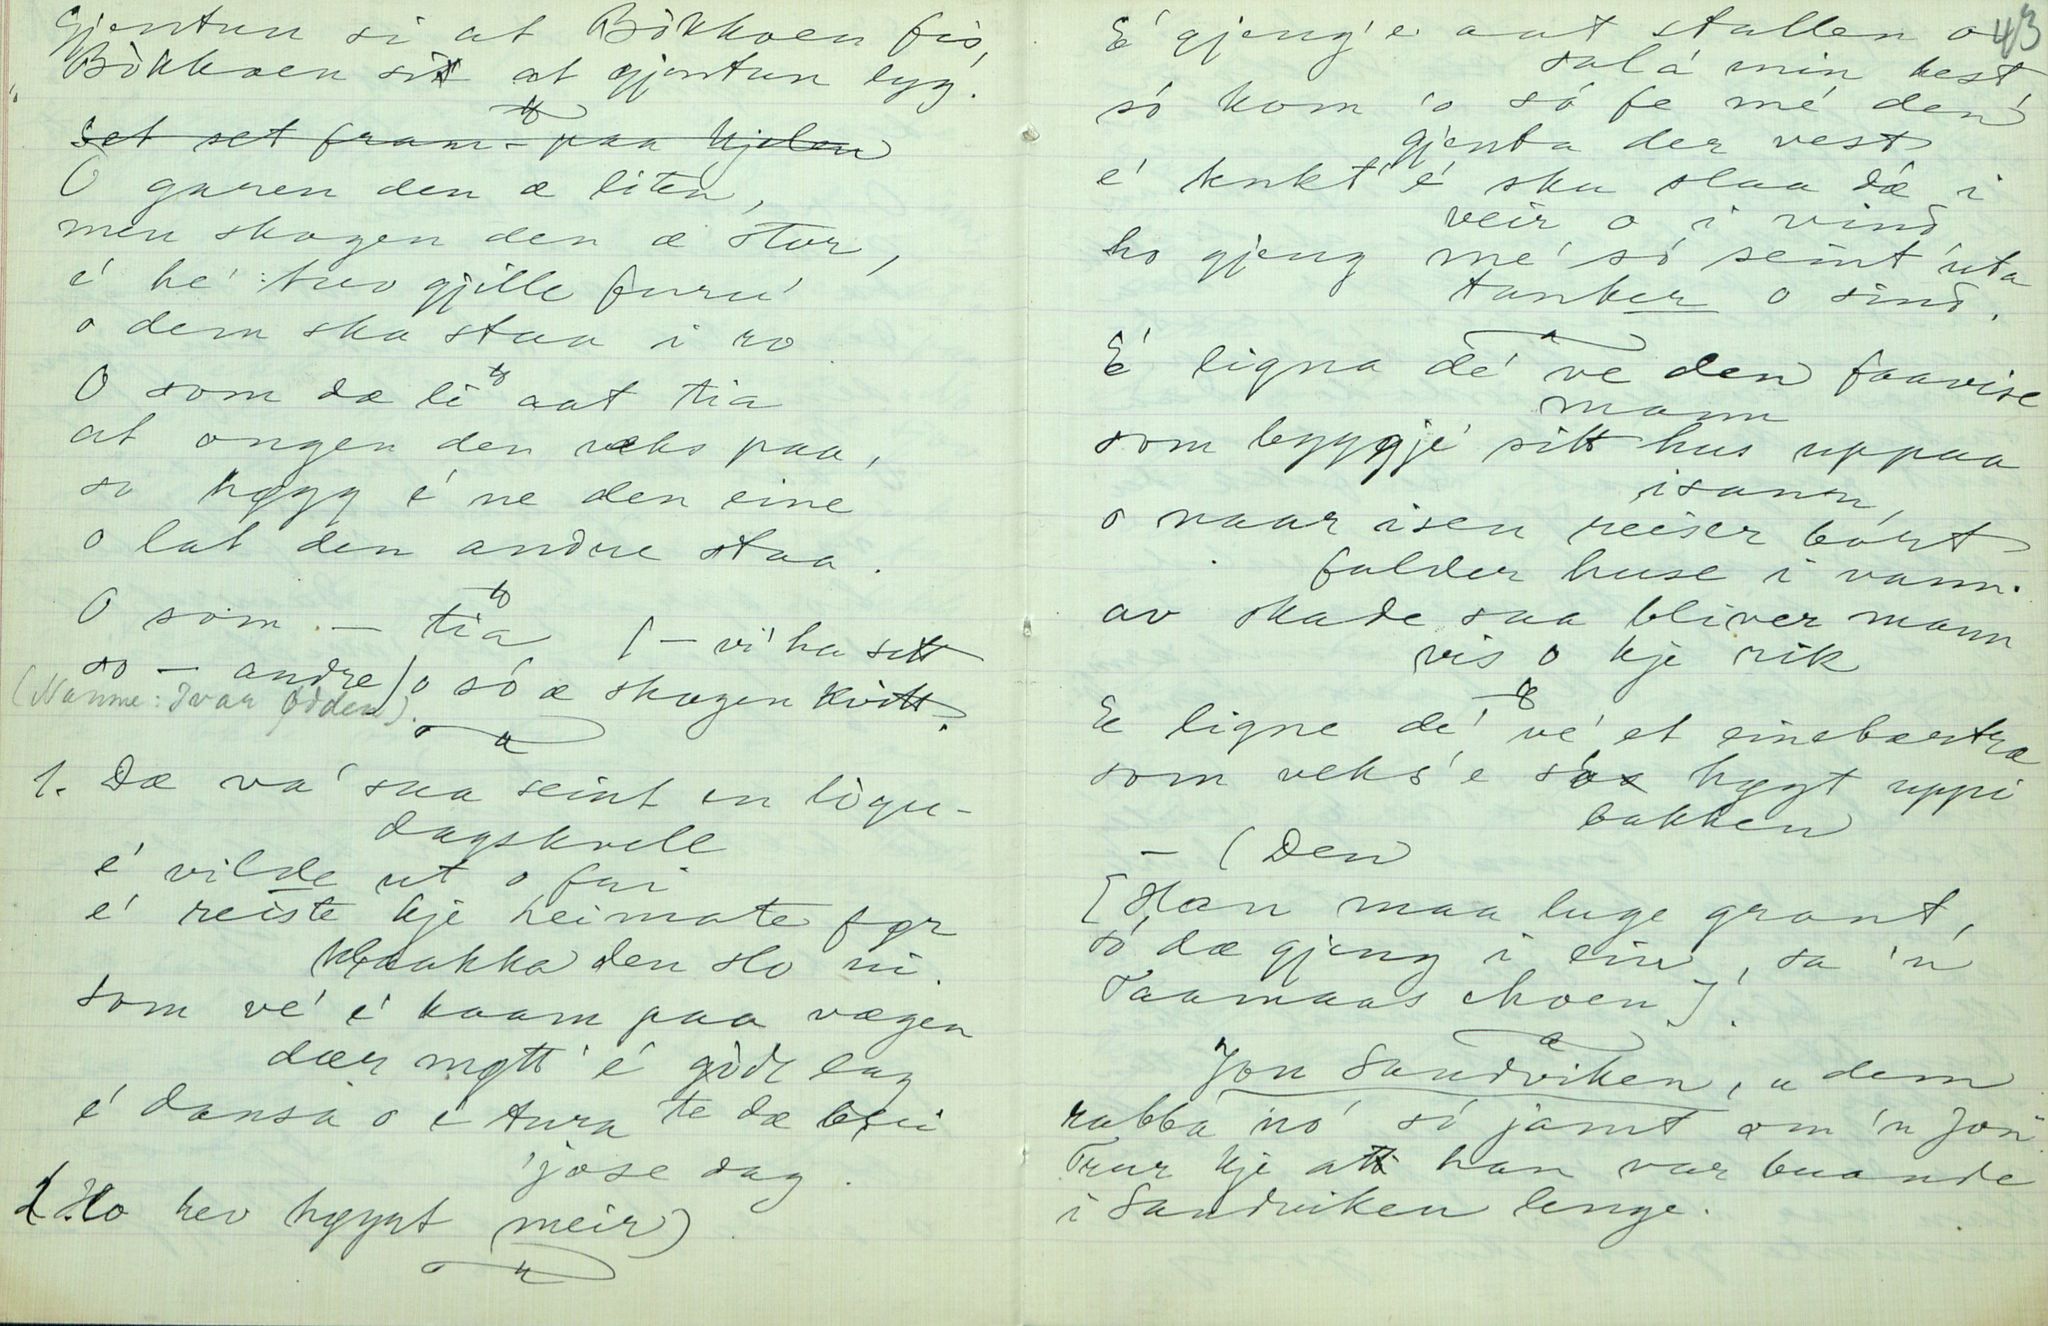 gjentun si at Bökkoen fis,
Bökkoen sit at gjentun lyg.
Set set fram - paa kjolen
O garen den æ liten,
men skogen den æ stor,
é hé tvo gjille furú
o dem ska staa i ro
O som dæ li aat tia
at ongen den veks paa,
so høgg é ne den eine
o lat den andre staa.
O som — tia [— vi ha sitt
so — andre] o só æ skogen kvitt.
(Namne: Ivar Odden).
1. Dæ va' saa seint en lögu-
dagskvell
é vilde ut o fri
é reiste kje heimate før
klaakka den slo ni.
som vé é kaam paa vægen
dær møtt' é godt lag
é dansa o é tura te dæ blei
'jose dag.
(Ho hev høyrt meir)
43
É gjeng'e aat stallen o
salá min hest
só kom 'o só fe mé den
gjenta der vest
é tenkt' é ska slaa dæ i
veir o i vind
ho gjeng mé só seint úta
tanker o sind.
É ligna dé ve den faavise
mann
som byggjé sitt hus uppaa
isann,
o naar isen reiser bórt
falder huse i vann.
av skade saa bliver mann
vis o kje rik
Ee ligne dé vé et einebærtræ
som veks'e so høgt uppi
bakken
— (Den
[Han maa luge grant,
só dæ gjeng i ein, sa 'n
Taamaas Moen].
Jon Sandviken, u dem
rabba nó só jamt om 'n Jon
Trur kje att han var buande
i Sandviken lenge.